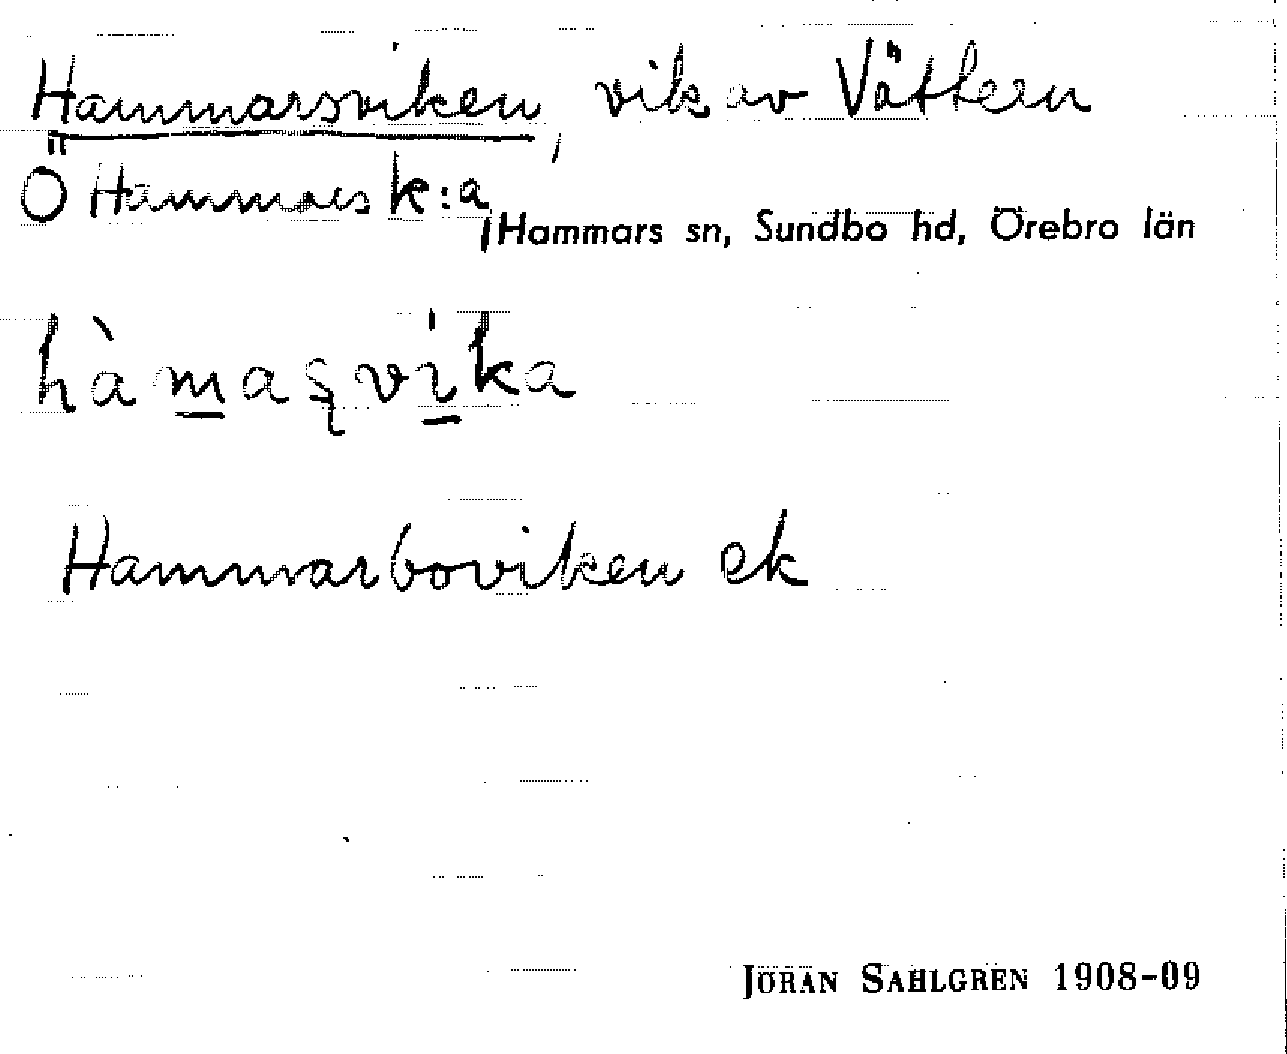 Hammarsviken, vik av Vättern
Ö Hammars k:a, Hammars sn, Sundbo hd, Örebro län
hàmaʂvi̇ka
Hammarboviken ek
JÖRAN SAHLGREN 1908-09